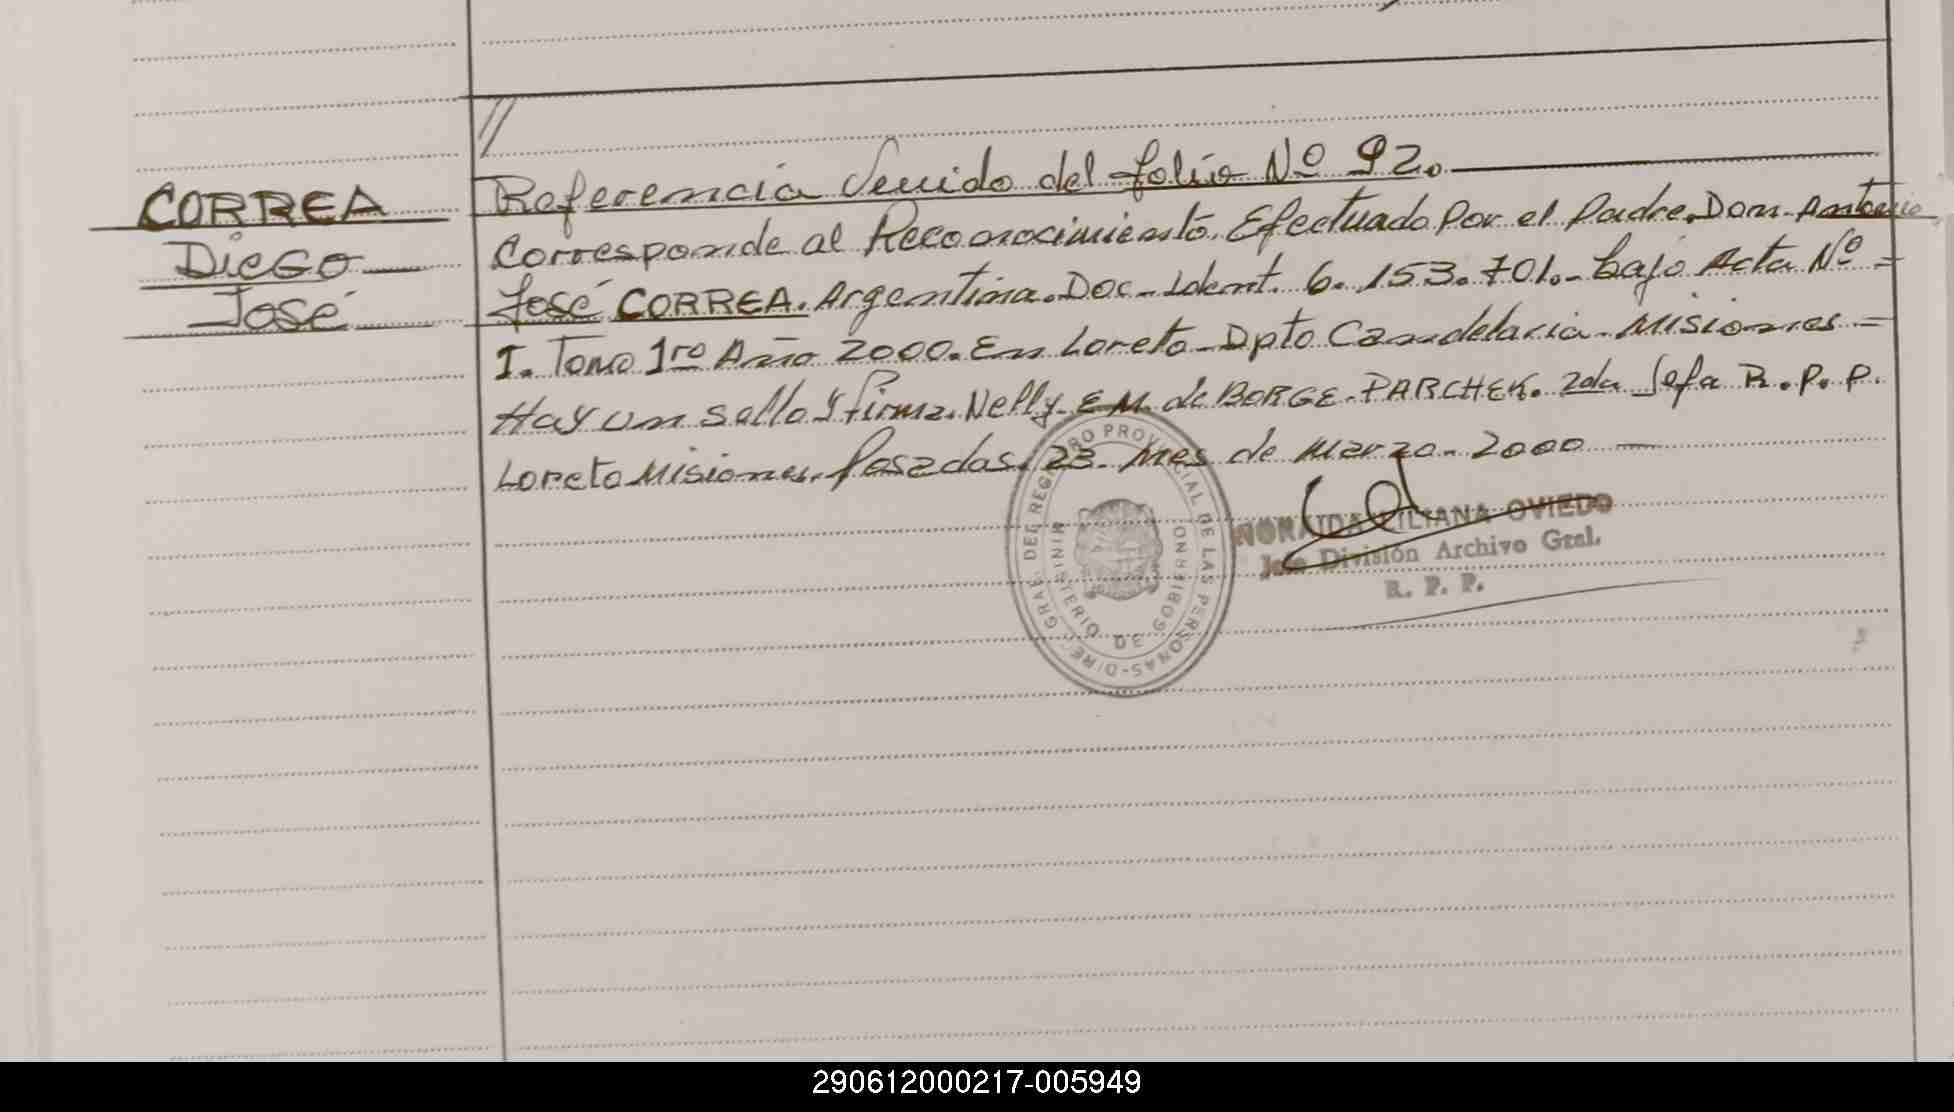 CORREA
Diego
José
Referencia Venido del folio Nº 92.
Corresponde al Reconocimiento. Efectuado Por el Padre. Don. Antonio
José CORREA. Argentina. Doc. Ident. 6.153.701.- bajo Acta Nº =
I. Tomo 1ro Año 2000. En Loreto - Dpto Candelaria - Misiones =
Hay un sello y firma. Nelly. E M. de BORGE. PARCHEK. 2da Jefa R.P.P.
Loreto Misiones. Posadas. 23. mes de marzo - 2000
DIREC GRAL. DEL REGISTRO PROVINCIAL DE LAS PERSONAS
MINISTERIO DE GOBIERNO
LILIANA OVIEDO
Jefe División Archivo Gral.
R. P. P.
290612000217-005949